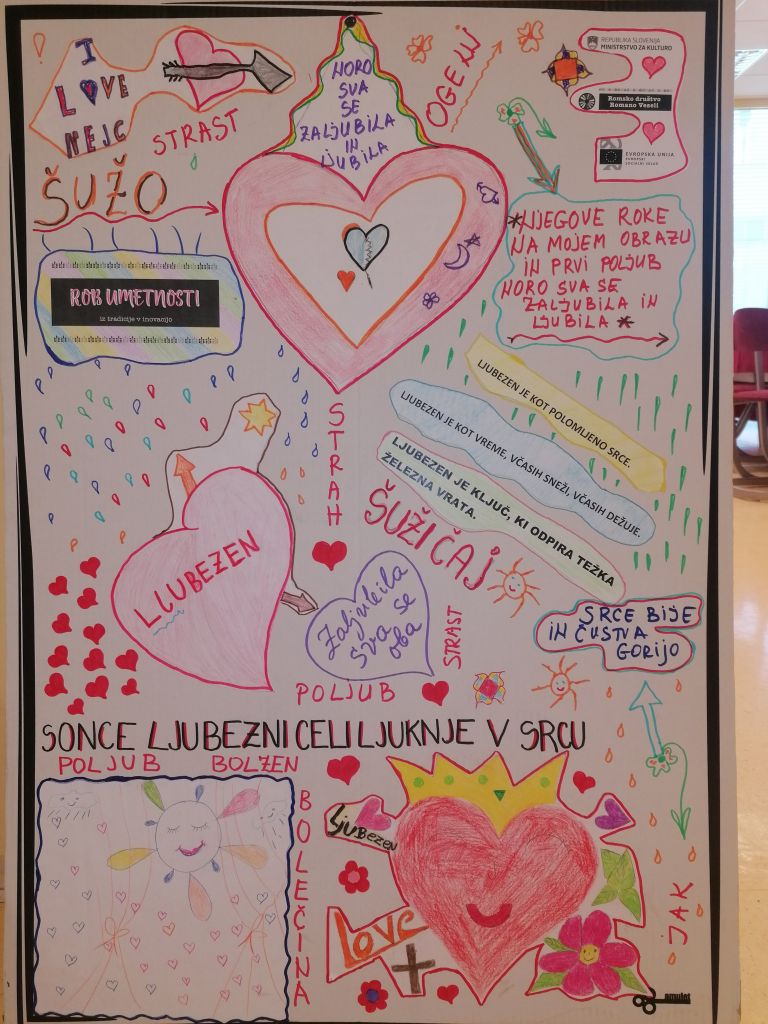 I
LOVE
NEJC
STRAST
ŠUŽO
NORO
SVA
SE
ZALJUBILA
IN
LJUBILA
OGENJ
REPUBLIKA SLOVENIJA
MINISTRSTVO ZA KULTURO
Romsko društvo
Romano Veseli
EVROPSKA UNIJA
EVROPSKI
SOCIALNI SKLAD
*NJEGOVE ROKE
NA MOJEM OBRAZU
IN PRVI POLJUB
NORO SVA SE
ZALJUBILA IN
LJUBILA *
ROB UMETNOSTI
iz tradicije v inovacijo
LJUBEZEN JE KOT POLOMLJENO SRCE.
LJUBEZEN JE KOT VREME, VČASIH SNEŽI, VČASIH DEŽUJE.
LJUBEZEN JE KLJUČ, KI ODPIRA TEŽKA
ŽELEZNA VRATA.
STRAH
ŠUŽIČAJ
LJUBEZEN
Zaljubila
sva se
oba
STRAST
POLJUB
SRCE BIJE
IN ČUSTVA
GORIJO
SONCE LJUBEZNI CELI LJUKNJE V SRCU
POLJUB BOLZEN
BOLEČINA
LJUBEZEN
Love
JAK
amulet